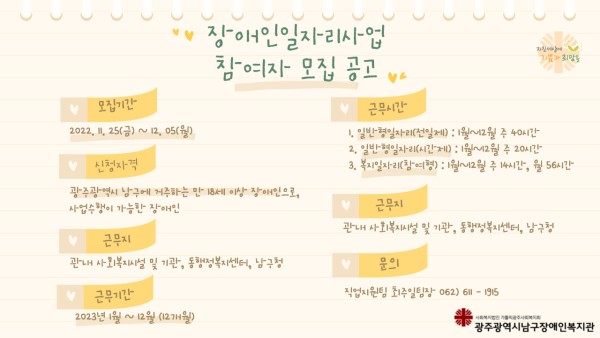 장애인일자리사업
참여자 모집 공고
지친세상에
기쁨과 희망을
모집기간
2022. 11. 25(금) ~ 12. 05(월)
신청자격
광주광역시 남구에 거주하는 만 18세 이상 장애인으로,
사업수행이 가능한 장애인
근무지
관내 사회복지시설 및 기관, 동행정복지센터, 남구청
근무기간
2023년 1월 ~ 12월 (12개월)
근무시간
1. 일반형일자리(전일제) : 1월~12월 주 40시간
2. 일반형일자리(시간제) : 1월~12월 주 20시간
3. 복지일자리(참여형) : 1월~12월 주 14시간, 월 56시간
근무지
관내 사회복지시설 및 기관, 동행정복지센터, 남구청
문의
직업지원팀 최주일팀장 062) 611 - 1915
사회복지법인 가톨릭광주사회복지회
광주광역시남구장애인복지관